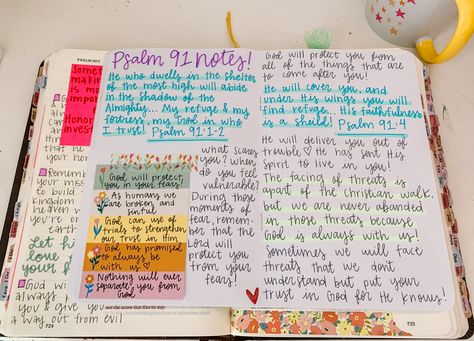 PSALM 91
Psalm 91 notes!
He who dwells in the shelter
of the most high will abide
in the shadow of the
Almighty... My refuge & my
fortress, my God in who
I trust! Psalm 91:1-2
God will protect
you in your fears!
As humans we
are broken and
sinful
God can use of
trials to strengthen
our trust in Him
God has promised
to always be
with us
Nothing will ever
separate you from
God
what scares
you? When
do you feel
vulnerable?
During those
moments of
fear, remem-
ber that the
Lord will
protect you
from your
fears!
God will protect you from
all of the things that are
to come after you!
He will cover you, and
under His wings you will
find refuge. His faithfulness
is a sheild! Psalm 91:4
He will deliver you out of
trouble & He has sent His
spirit to live in you!
The facing of threats is
apart of the Christian walk,
but we are never abandoned
in those threats because
God is always with us!
Sometimes we will face
threats that we dont
understand but put your
trust in God for He knows!
Some
making
is mos
impor
honor
invest
God
Remember
Let h
love
your
God will
always
& give you
a way out from evil
724
725